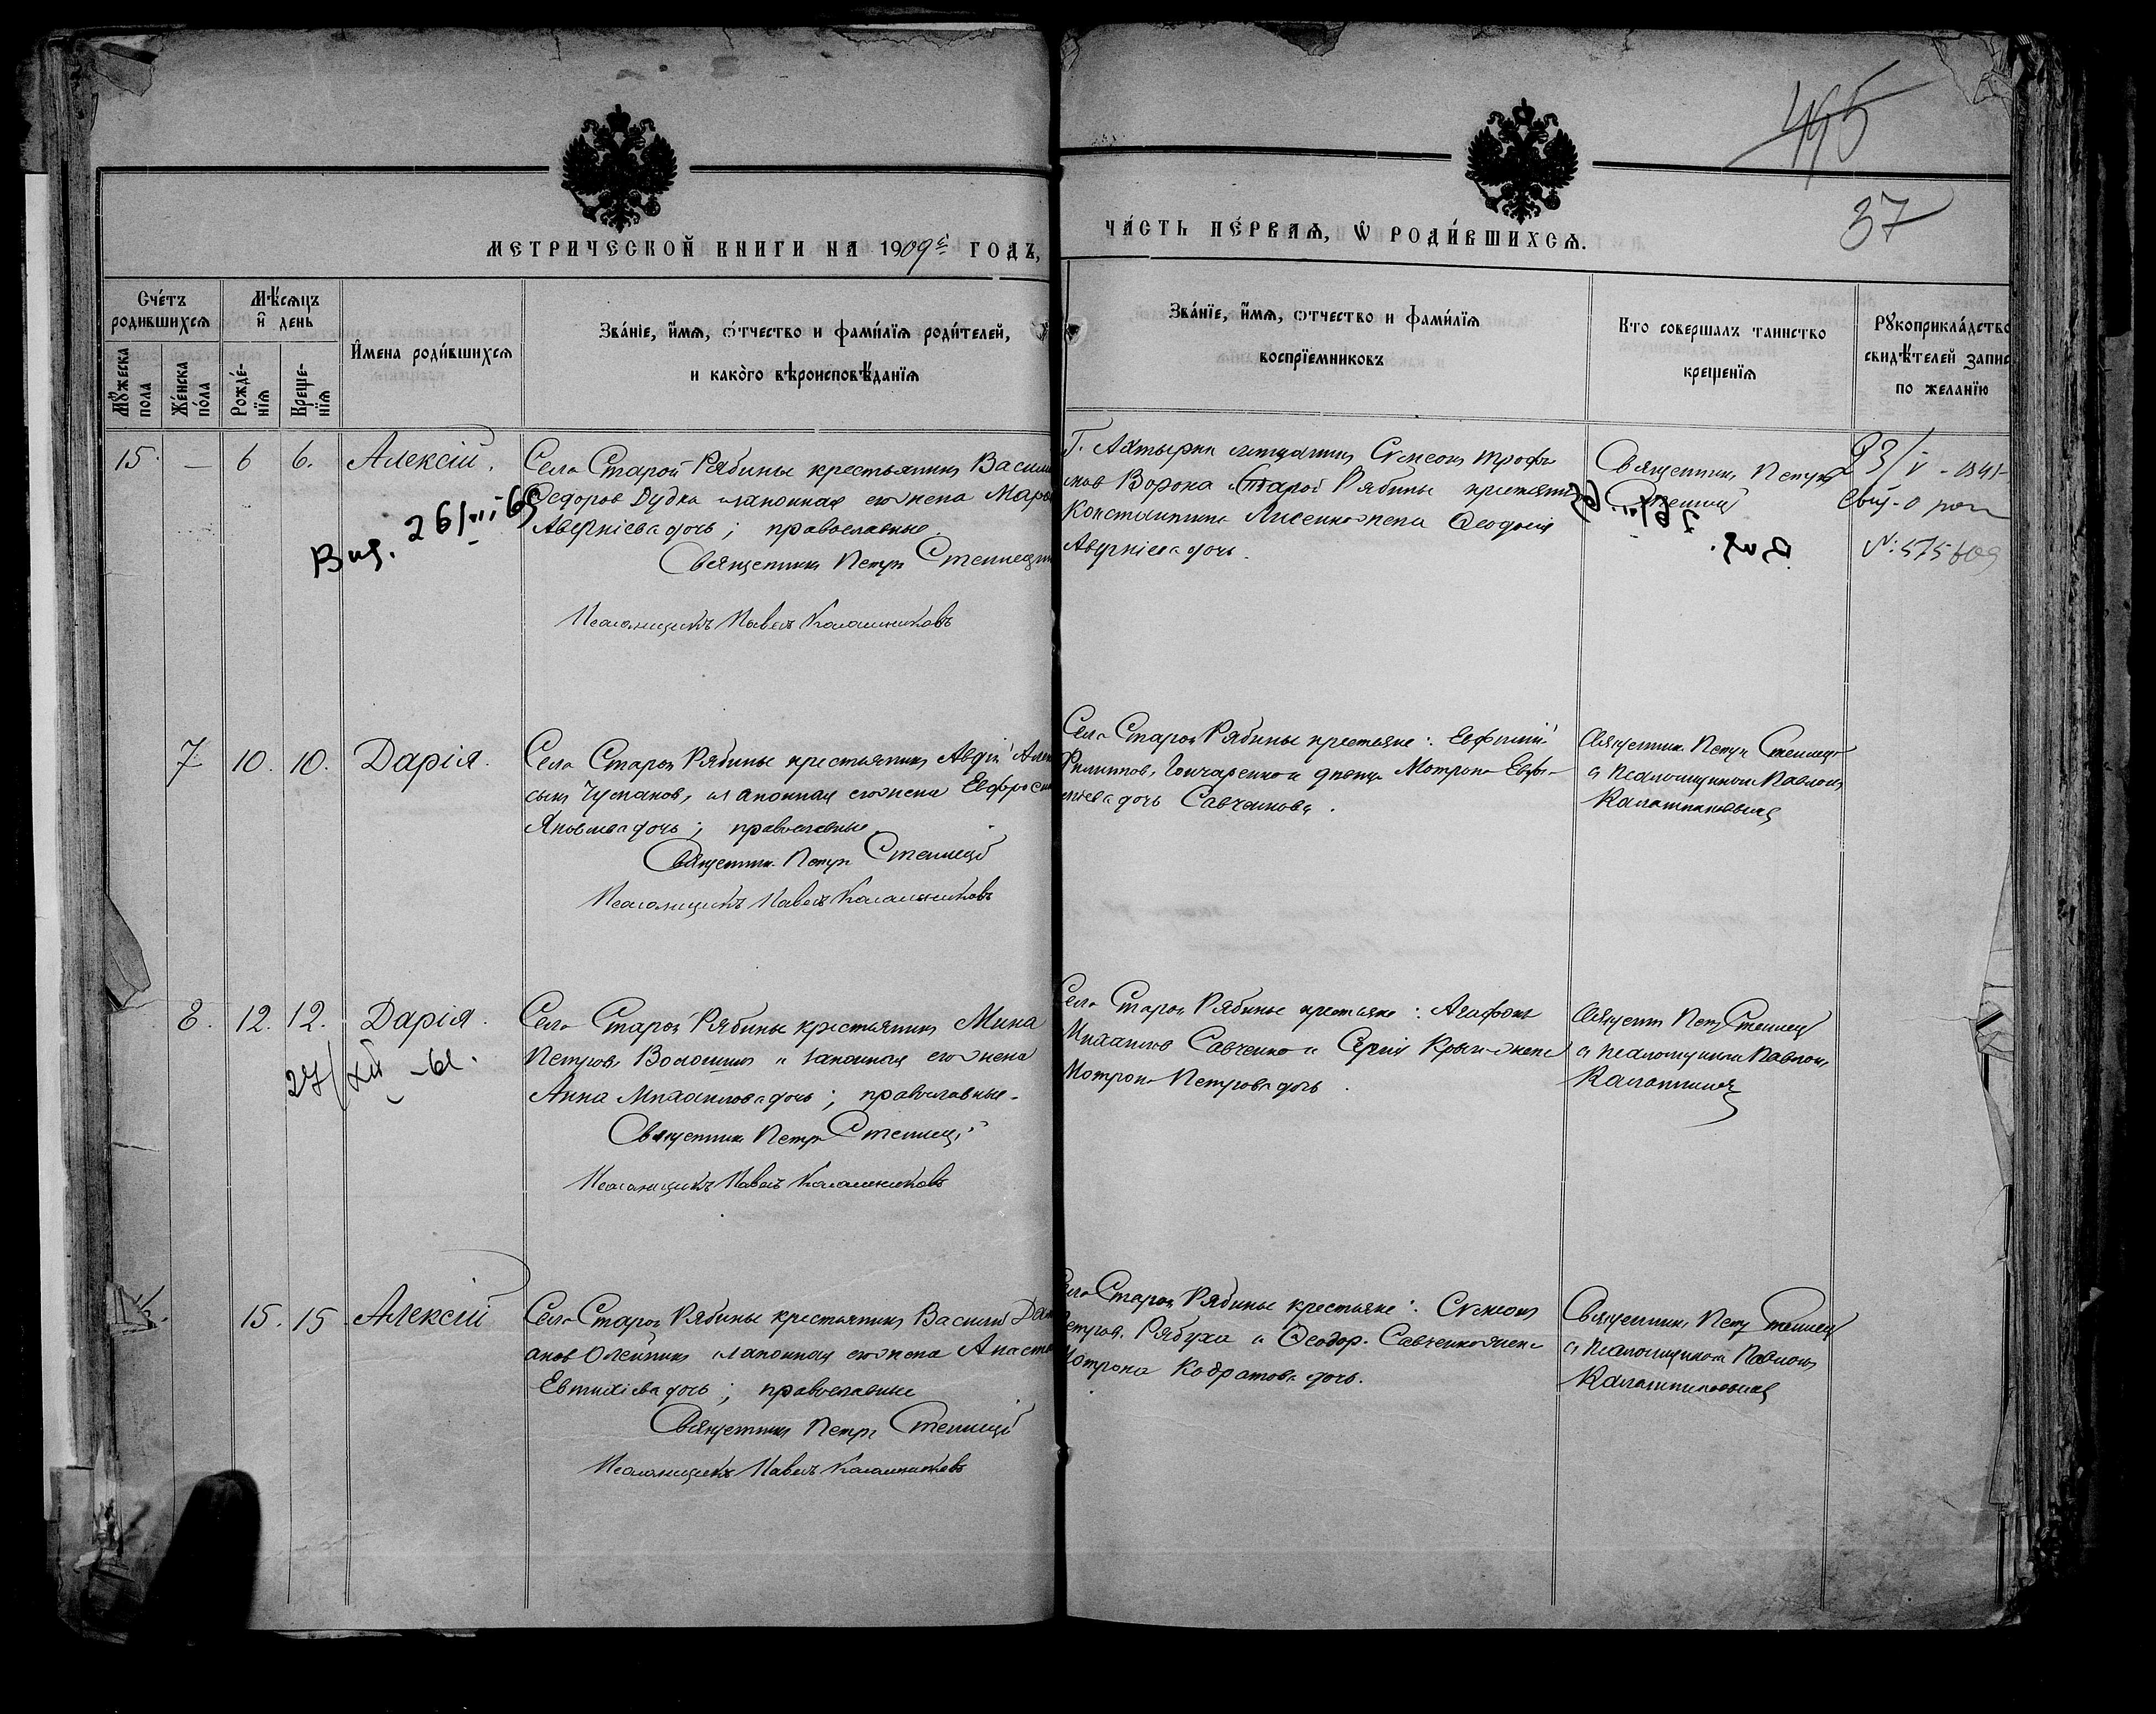 495
37
МЕТРИЧЕСКОЙ КНИГИ НА 1909й ГОДЪ,
ЧА́СТЬ ПЕ́РВАѦ, Ѡ҆ РОДИ́ВШИХСѦ.
Сче́тъ родившихсѧ
Мѣ́сѧцъ и҆ день
И҆́мена роди́вшихсѧ
Зва́нїе, и҆́мѧ, ѻ҆́тчество и фами́лїѧ роди́телей,
и како́го вѣроисповѣ́данїѧ
Мꙋ́жеска пола
Же́нска по́ла
Рожде́-нїѧ
Креще-нїѧ
Зва́нїе, и҆́мѧ, ѻтчество и фами́лїѧ
воспрїемниковъ
Кто совершалъ таинство
крещенїѧ
Рꙋкоприкла́дство
свидѣ́телей запис
по желанїю
15. — 6 6. Алексій.
Села Старой Рябины крестьянинъ Васил
Ѳедоровъ Дудка и законная его жена Мар
Аверкіева дочь; православные.
Священникъ Петръ Стеллецкі
Псаломщикъ Павелъ Калашниковъ
Выд. 26/III 65
Г. Ахтырки мещанинъ Сѵмеонъ Трофи
мовъ Ворона Старой Рябины крестьянина
Константина Лисенко жена Ѳеодосія
Аверкіева дочь.
Священникъ Петръ
Стеллецкій
23/V - 1941
№ 575609
7 10. 10. Дарія.
Села Старой Рябины крестьянинъ Авдій Але
сѣевъ Чумаковъ, и законная его жена Евфроси
Яковлева дочь; православные.
Священник. Петръ Стеллецкій
Псаломщикъ Павелъ Калашниковъ
Села Старой Рябины крестьяне: Евфимій
Филипповъ Гончаренко и девица Мотрона Евфи-
міева дочь Савченкова.
Священник. Петръ Стеллецкі
съ Псаломщикомъ Павломъ
Калашниковымъ
8. 12. 12. Дарія.
27/XII - 61.
Села Старой Рябины крестьянинъ Мина
Петровъ Волошинъ и законная его жена
Анна Михаилова дочь; православные.
Священникъ Петръ Стеллецкій
Псаломщикъ Павелъ Калашниковъ
Села Старой Рябины крестьяне: Агафонъ
Михаиловъ Савченко и Сергія Крыш жена
Мотрона Петрова дочь.
Священ Петръ Стеллец
съ псаломщикомъ Павломъ
Калашник
15. 15 Алексій
Села Старой Рябины крестьянинъ Василій Дам
ановъ Олейникъ и законная его жена Анаста
Евтихіева дочь; православные
Священникъ Петръ Стеллецкій
Псаломщикъ Павелъ Калашниковъ
Села Старой Рябины крестьяне: Сѵмеонъ
Петров. Рябуха и Ѳеодор. Савченко жена
Мотрона Кодратова дочь.
Священникъ Петръ Стеллец
съ Псаломщикомъ Павломъ
Калашниковымъ